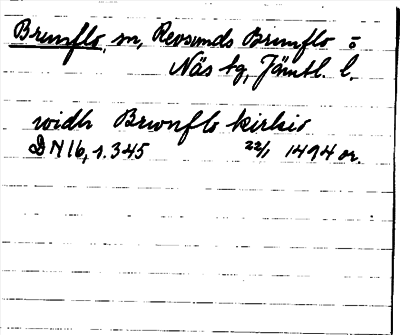 Brunflo, sn, Revsunds Brunflo o
Näs tg, Jämtl. l.
widh Brwnflo kirkio
DN 16, s. 345 22/1 1494 or.